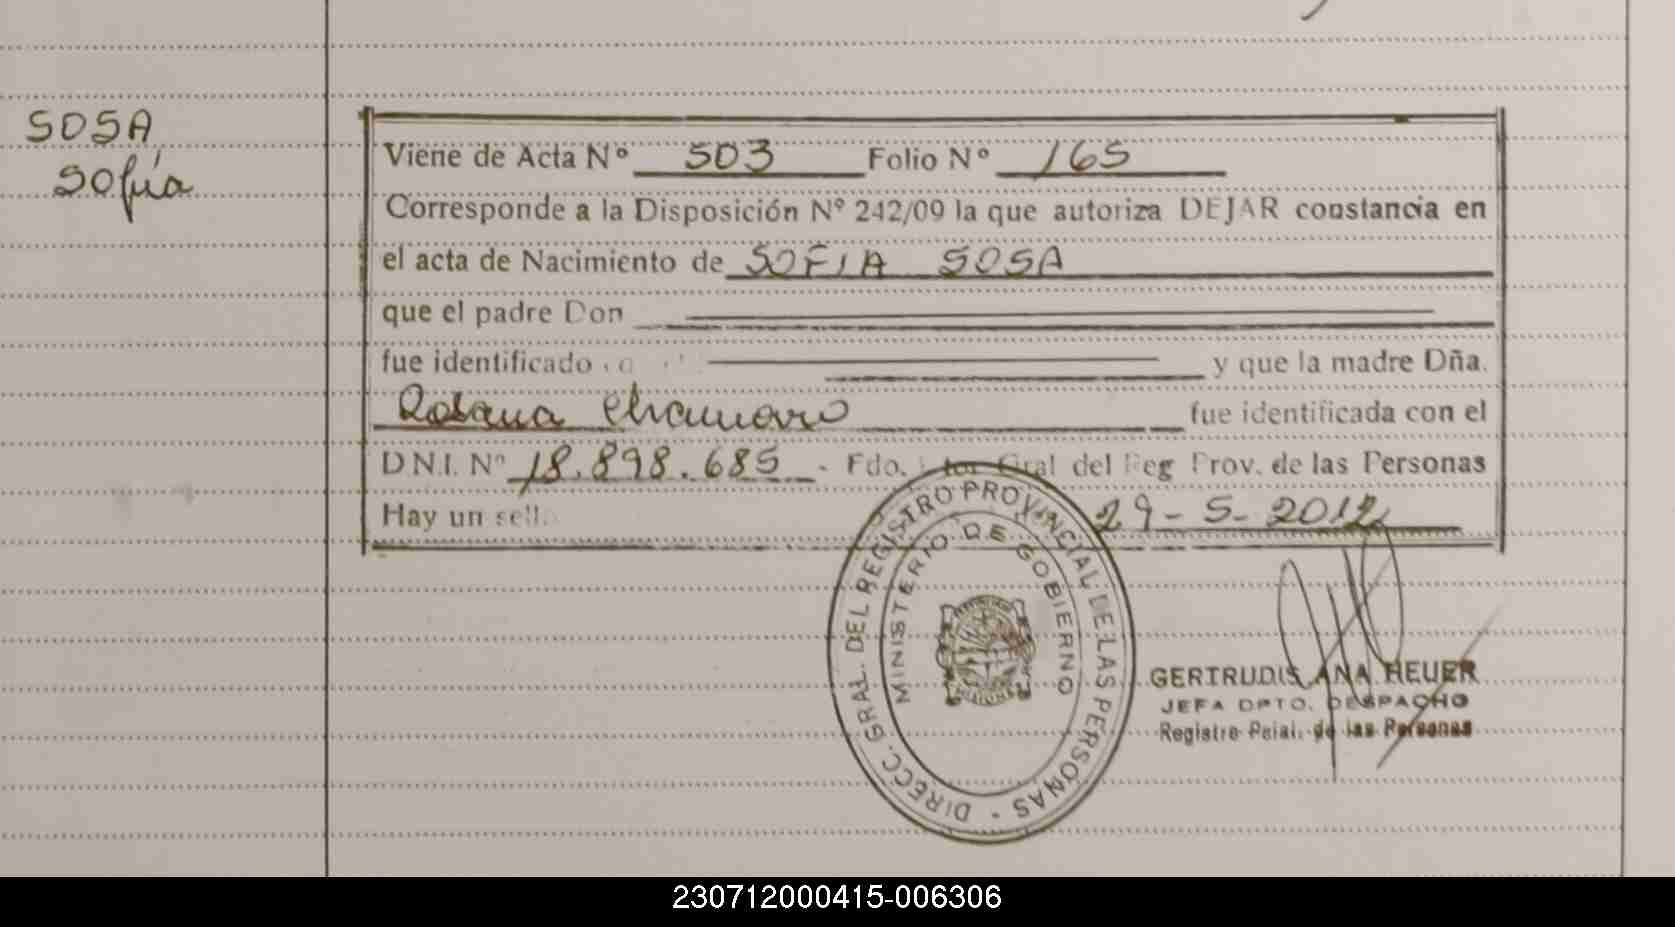 SOSA,
Sofía
Viene de Acta Nº 503 Folio Nº 165
Corresponde a la Disposición Nº 242/09 la que autoriza DEJAR constancia en
el acta de Nacimiento de SOFIA SOSA
que el padre Don
fue identificado y que la madre Dña.
Rosana Chamorro fue identificada con el
D.N.I. Nº 18.898.685 - Fdo. Gral del Reg Prov. de las Personas
Hay un sell. 29-5-2012
DIRECC. GRAL. DEL REGISTRO PROVINCIAL DE LAS PERSONAS -
MINISTERIO DE GOBIERNO
MISIONES
GERTRUDIS ANA HEUER
JEFA DPTO. DESPACHO
Registro Pcial. de las Personas
230712000415-006306